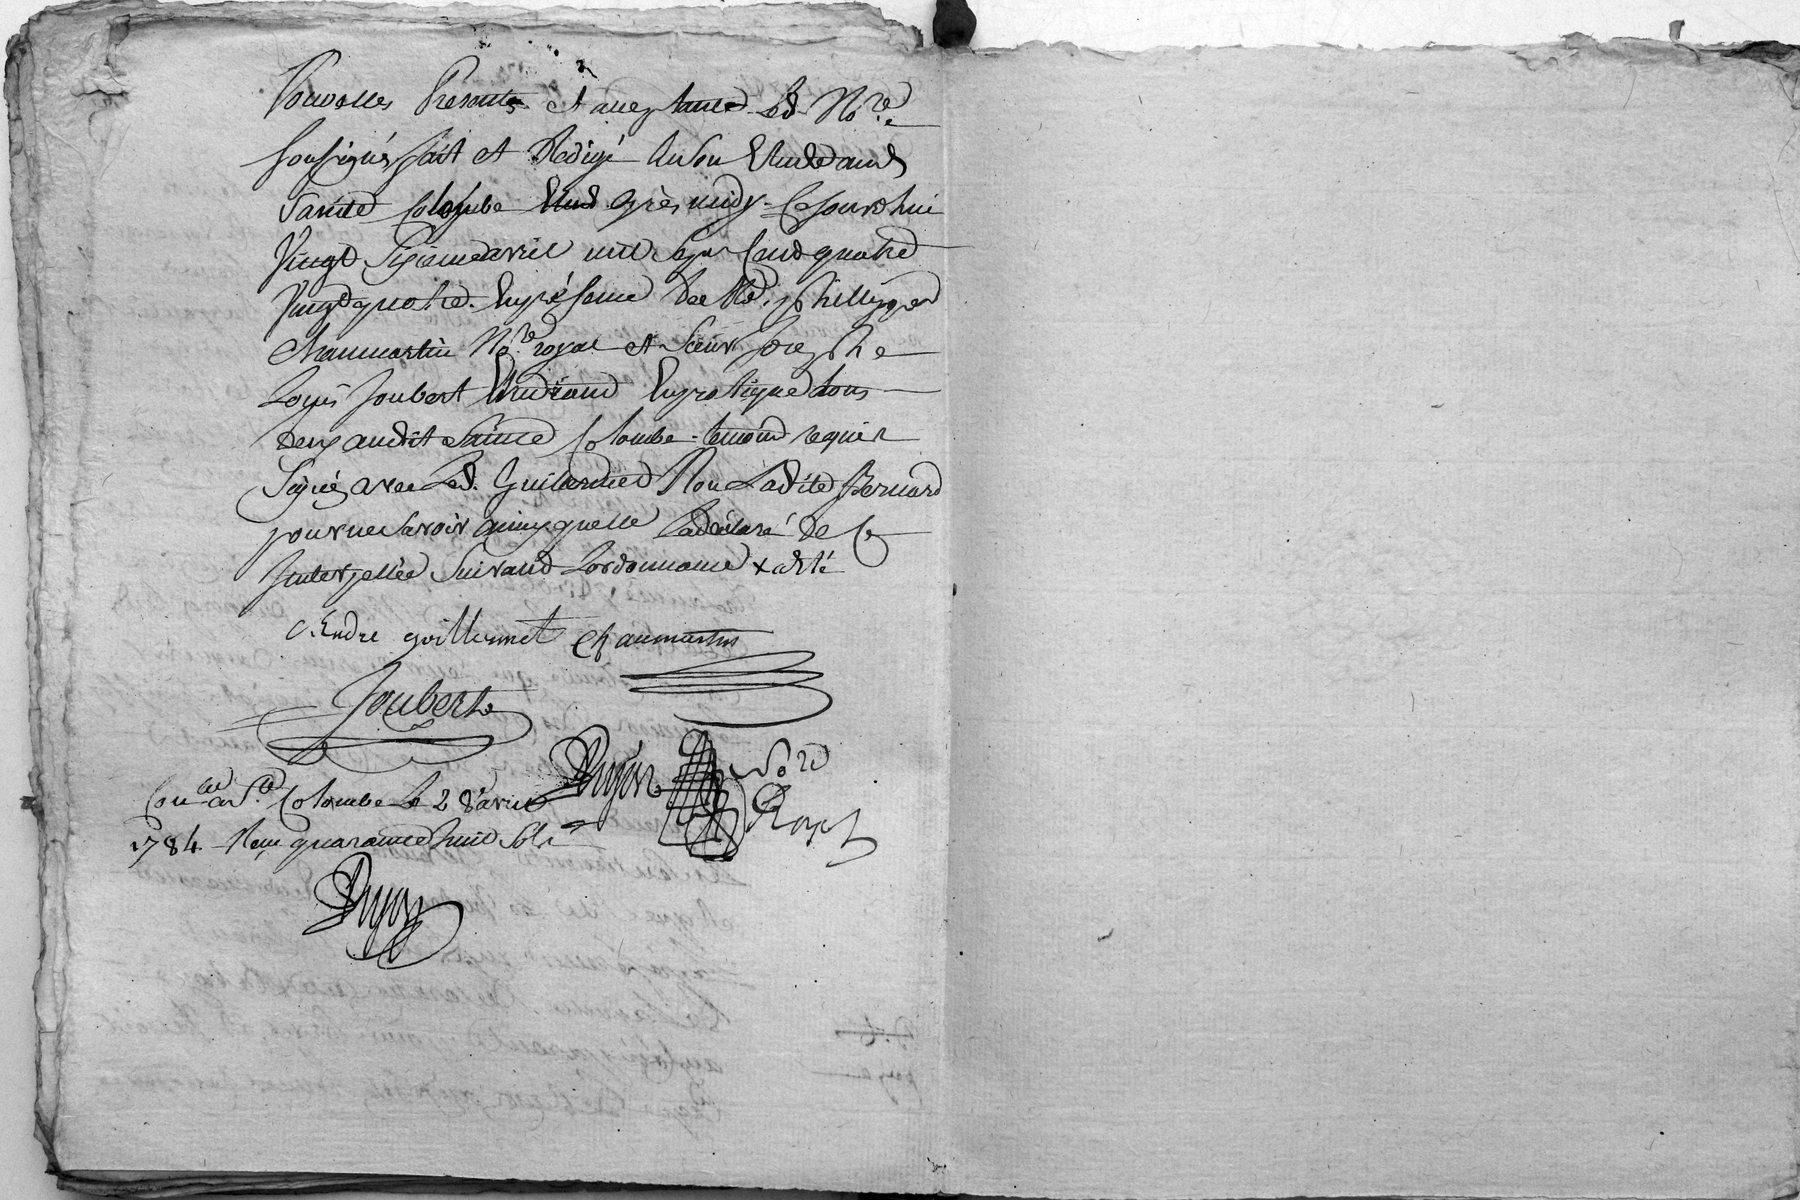 pour elles presents et acceptants led. No.re
soussigné fait et Redigé En son Etude aud.
Sainte Colombe apres midy Ce jourdhui
Vingt Sixieme avril mil Sept Cent quatre
Vingt quatre. En presence de Me. phillippe
Chaumartin No.re royal et Sieur Joseph
Louis Joubert Etudiant En pratique tous
deux audit Sainte Colombe temoins requis
Signés avec Led. Guillermet Non Ladite Bernard
pour ne savoir ainsy quelle La déclaré de Ce
Interpellée Suivant Lordonnance
Endre guillermet Chaumartin
Joubert
No.re Royal
Con.lé a S.te Colombe Le 28 avril
1784 Reçu quarante huit sols